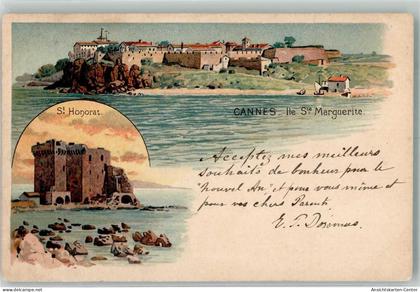 CANNES Ile Ste Marguerite.
St Honorat.
Acceptez mes meilleurs
souhaits de bonheur pour le
"nouvel An," et pour vous même et
pour vos chers Parents.